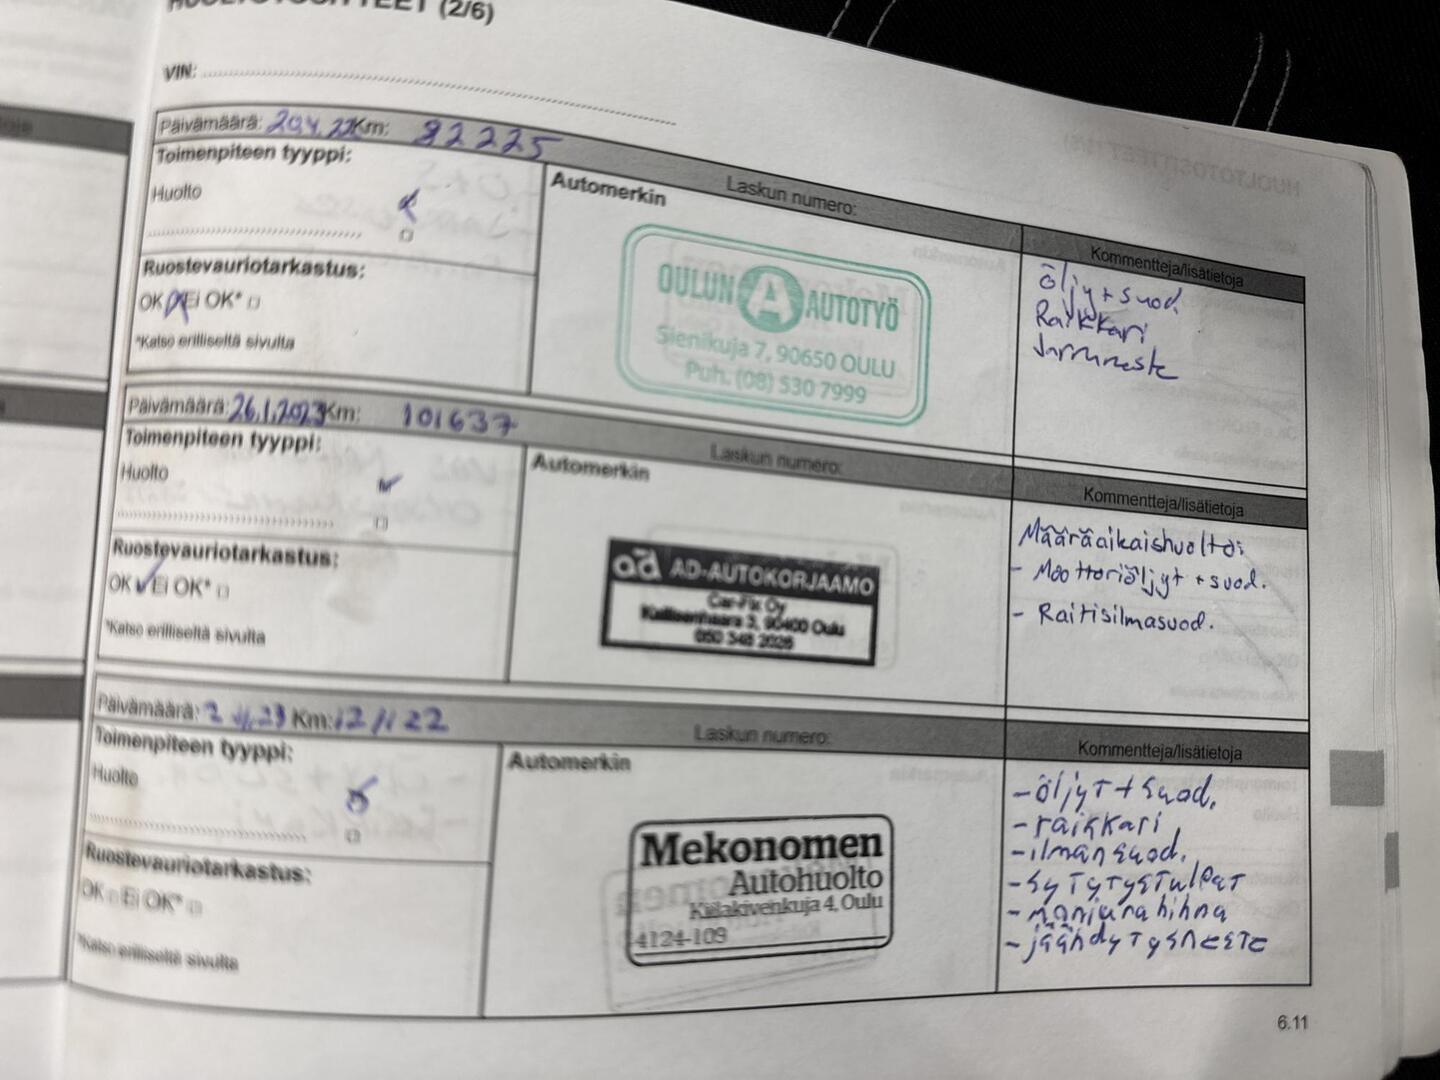 HUOLTOTOSITTEET (2/6)
VIN:
Päivämäärä: 20.4.22 Km: 82225
Laskun numero:
Toimenpiteen tyyppi:
Huolto
Ruostevauriotarkastus:
OK Ei OK*
*Katso erilliseltä sivulta
Automerkin
OULUN A AUTOTYÖ
Sienikuja 7, 90650 OULU
Puh. (08) 530 7999
Kommentteja/lisätietoja
Öljy + suod.
Raikkari
Jarruneste
Päivämäärä: 26.1.2023 Km: 101637
Laskun numero:
Toimenpiteen tyyppi:
Huolto
Ruostevauriotarkastus:
OK Ei OK*
*Katso erilliseltä sivulta
Automerkin
ad AD-AUTOKORJAAMO
Car-Fix Oy
Kallisenhaara 3, 90400 Oulu
050 348 2026
Kommentteja/lisätietoja
Määräaikaishuolto:
- Moottoriöljyt + suod.
- Raitisilmasuod.
Päivämäärä: 2.11.23 Km: 121122
Laskun numero:
Toimenpiteen tyyppi:
Huolto
Ruostevauriotarkastus:
OK Ei OK*
*Katso erilliseltä sivulta
Automerkin
Mekonomen
Autohuolto
Kiilakivenkuja 4, Oulu
4124-109
Kommentteja/lisätietoja
- öljyt + suod.
- raikkari
- ilmansuod.
- sytytystulpat
- moniurahihna
- jäähdytysneste
6.11